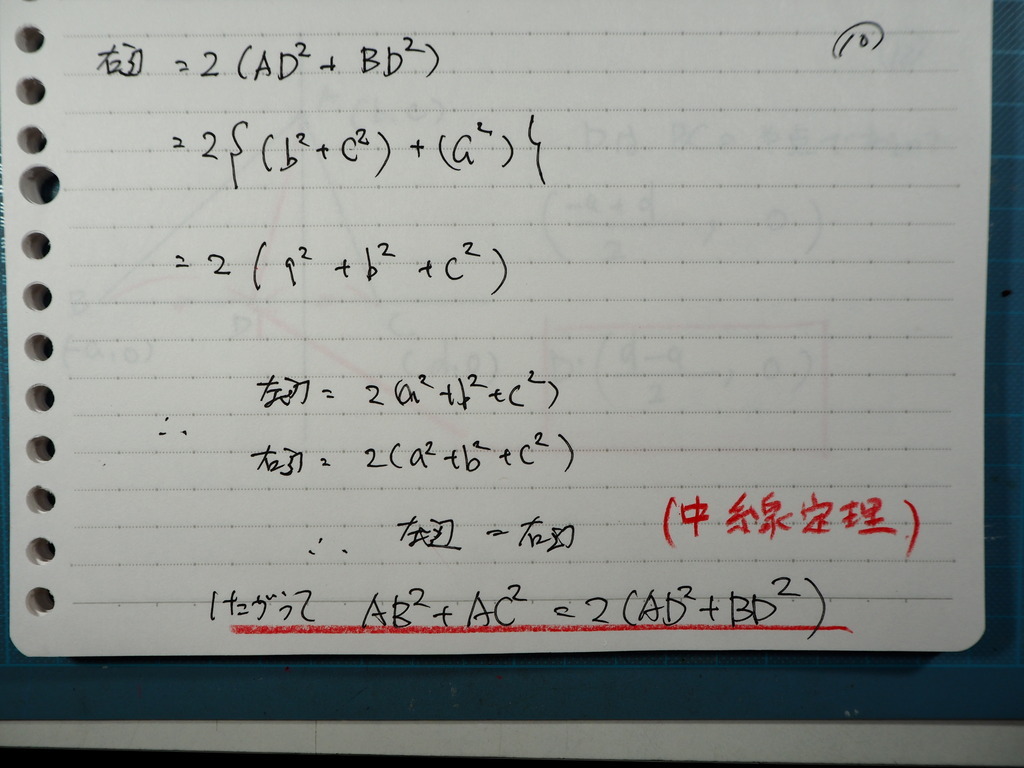 ⑩
右辺 = 2 (AD² + BD²)
= 2 { (b² + c²) + (a²) }
= 2 (a² + b² + c²)
左辺 = 2 (a² + b² + c²)
∴
右辺 = 2 (a² + b² + c²)
∴ 左辺 = 右辺
(中線定理)
したがって AB² + AC² = 2 (AD² + BD²)